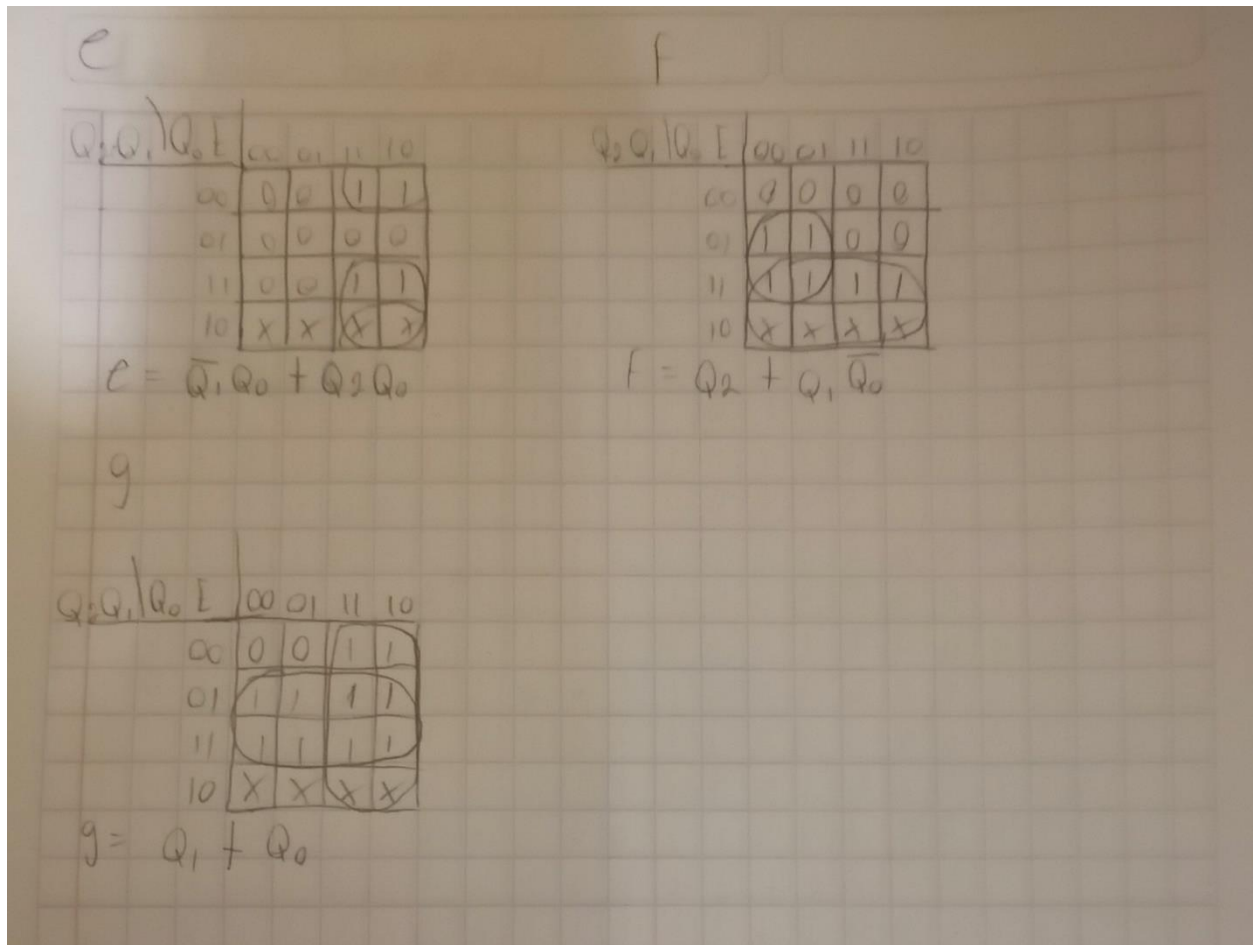 e
Q₂Q₁\Q₀ E 00 01 11 10
00 0 0 1 1
01 0 0 0 0
11 0 0 1 1
10 X X X X
e = Q̅₁Q₀ + Q₂Q₀
F
Q₂Q₁\Q₀ E 00 01 11 10
00 0 0 0 0
01 1 1 0 0
11 1 1 1 1
10 X X X X
F = Q₂ + Q₁Q̅₀
g
Q₂Q₁\Q₀ E 00 01 11 10
00 0 0 1 1
01 1 1 1 1
11 1 1 1 1
10 X X X X
g = Q₁ + Q₀